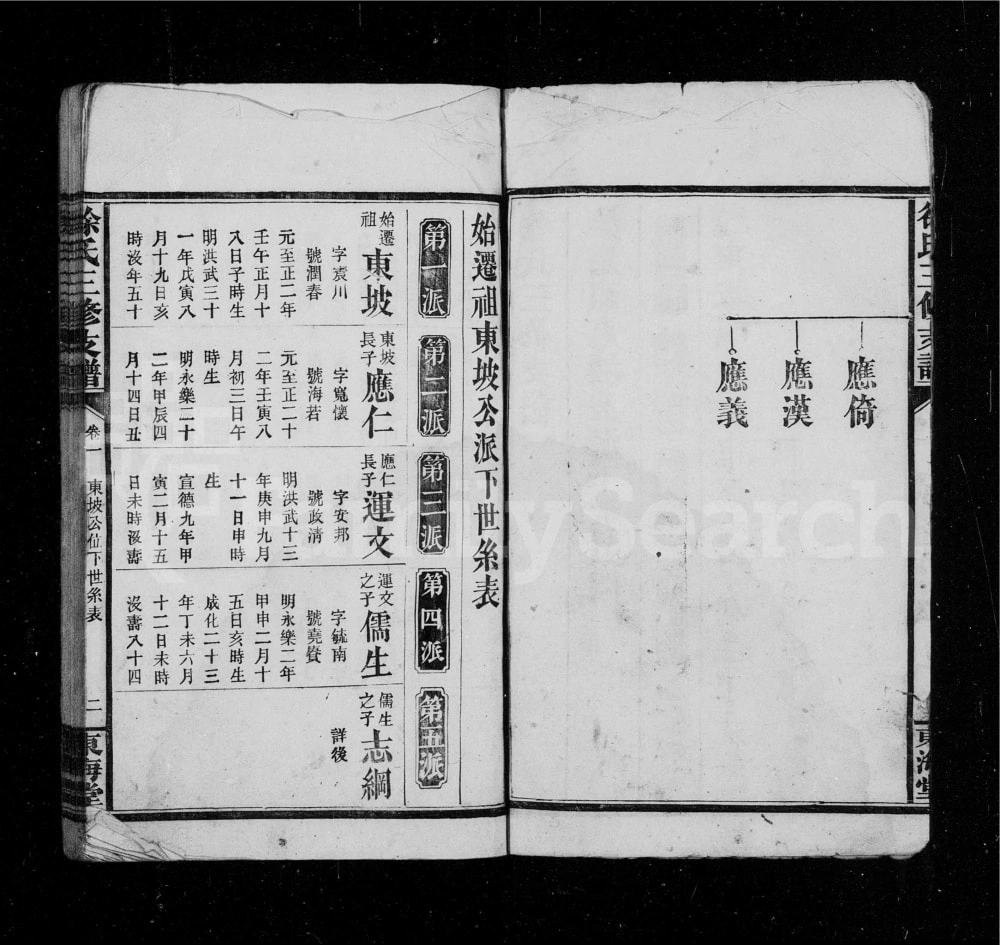 徐氏三修支譜
東海堂
應倚
應漢
應義
始遷祖東坡公派下世系表
第一派
第二派
第三派
第四派
第五派
始遷祖
東坡
字袁川
號潤春
元至正二年
壬午正月十
八日子時生
明洪武三十
一年戊寅八
月十九日亥
時沒年五十
東坡長子
應仁
字寬懷
號海若
元至正二十
二年壬寅八
月初三日午
時生
明永樂二十
二年甲辰四
月十四日丑
應仁長子
運文
字安邦
號政清
明洪武十三
年庚申九月
十一日申時
生
宣德九年甲
寅二月十五
日未時沒壽
運文之子
儒生
字毓南
號堯賡
明永樂二年
甲申二月十
五日亥時生
成化二十三
年丁未六月
十二日未時
沒壽八十四
儒生之子
志綱
詳後
徐氏三修支譜
卷一
東坡公位下世系表
二
東海堂
FamilySearch